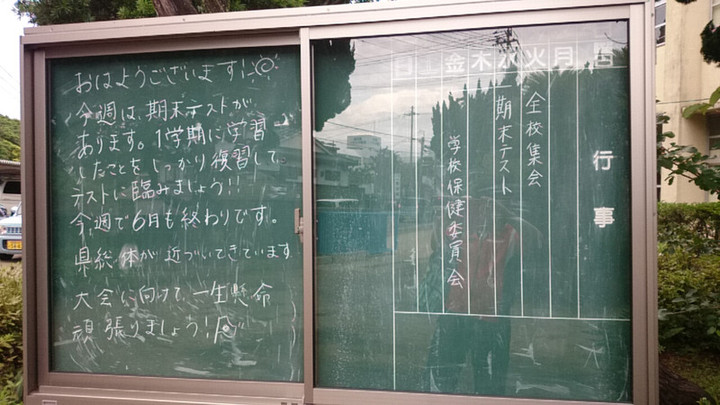 おはようございます!
今週は、期末テストが
あります。1学期に学習
したことをしっかり復習して
テストに臨みましょう!!
今週で6月も終わりです。
県総体が近づいてきています
大会に向けて、一生懸命
頑張りましょう!
行事
月
火 全校集会
水 期末テスト
木
金 学校保健委員会
日